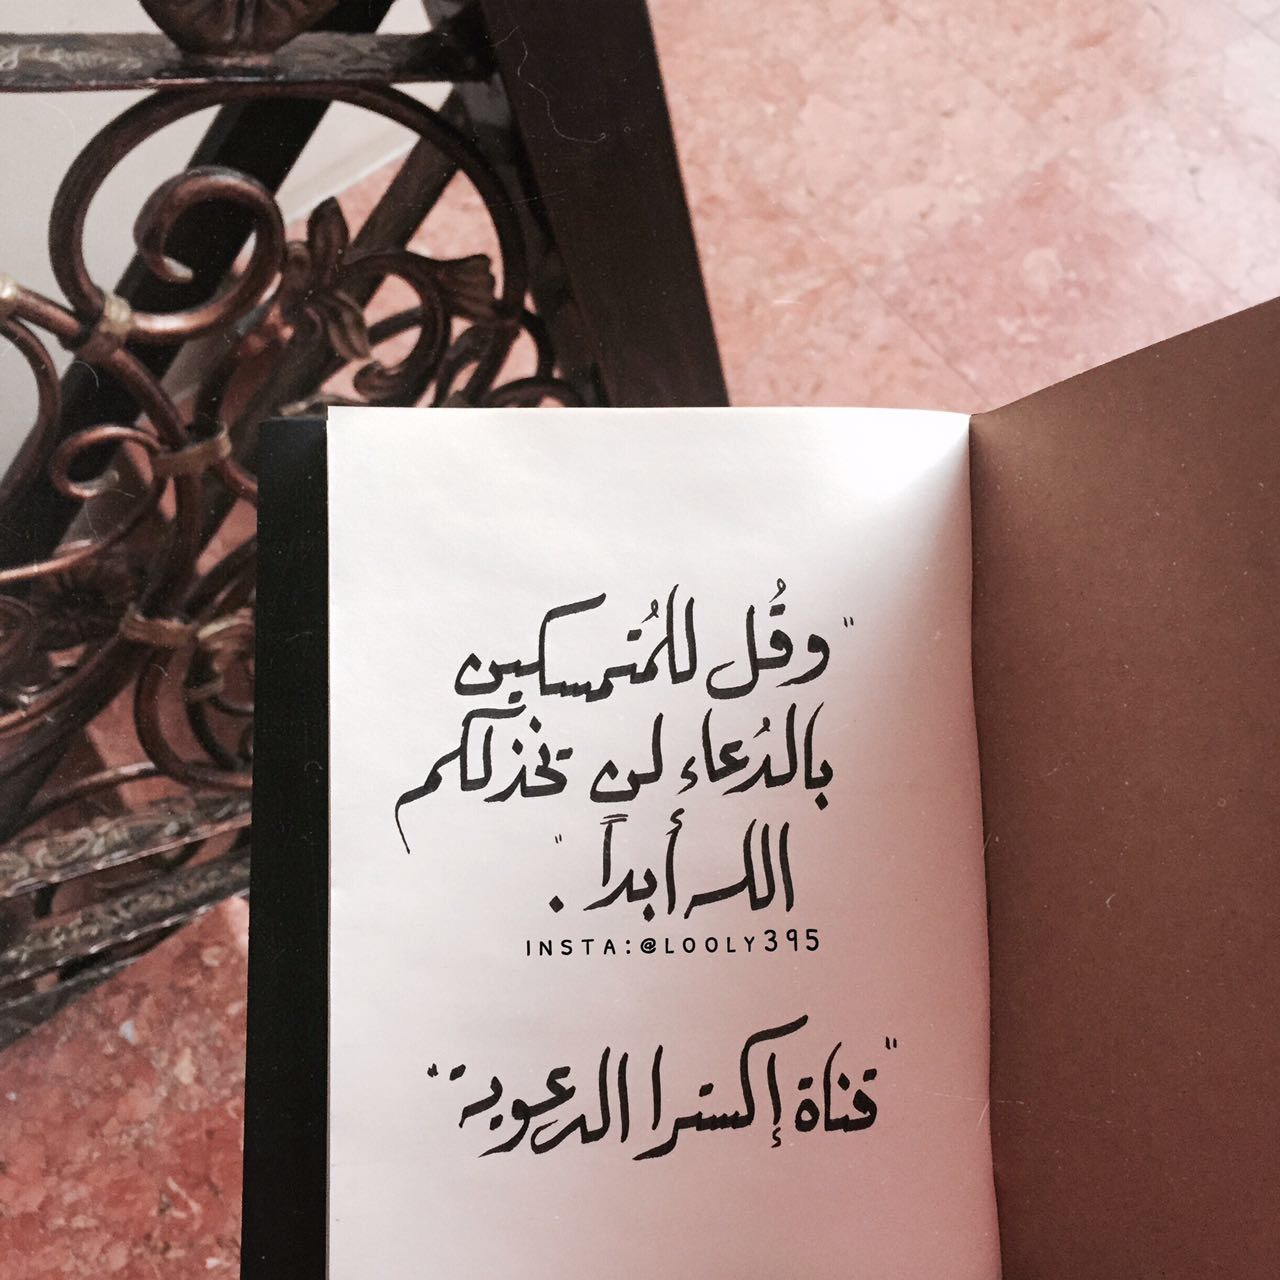 "وقُل للمُتمسكين
بالدُعاء لن يخذلكم
الله أبداً".
INSTA:@LOOLY395
"قناة إكسترا الدعوية"